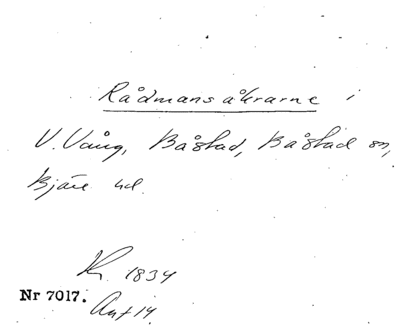 Rådmansåkrarne i
V. Vång, Båstad, Båstad sn,
Bjäre hd.
Kr. 1834
Nr 7017.
Ant 14